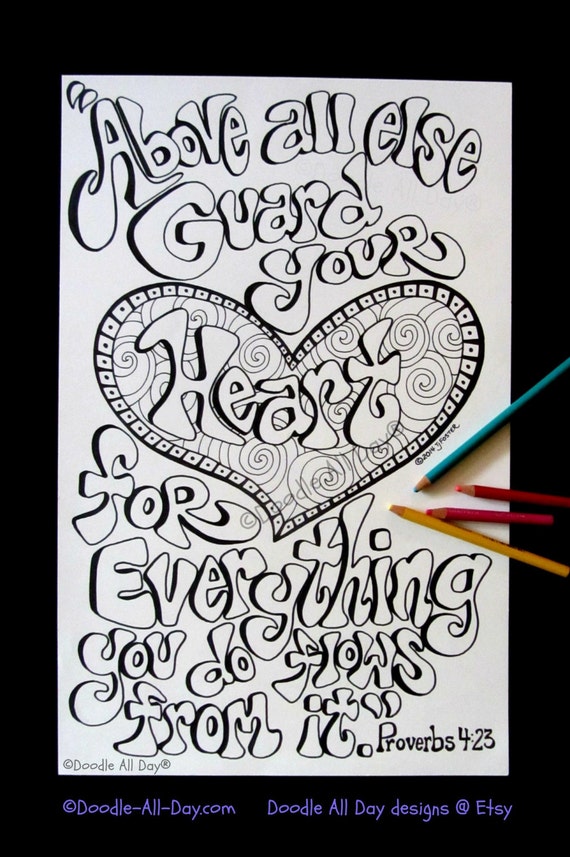 "Above all else
Guard
your
Heart
©2014 J. FOSTER
©Doodle All Day®
for
Everything
you do flows
from it."
Proverbs 4:23
©Doodle All Day®
©Doodle-All-Day.com Doodle All Day designs @ Etsy